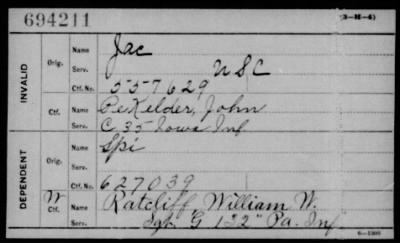 694211 (3-H-4)
INVALID
Orig. Name Jac
Serv. USC
Ctf. No. 557629
Ctf. Name DeKelder, John
Serv. C 35 Iowa Inf
DEPENDENT
Orig. Name Spi
Serv.
Ctf. No. 627039
W Ctf. Name Ratcliff, William W.
Serv. Sgt. "G" 132" Pa. Inf